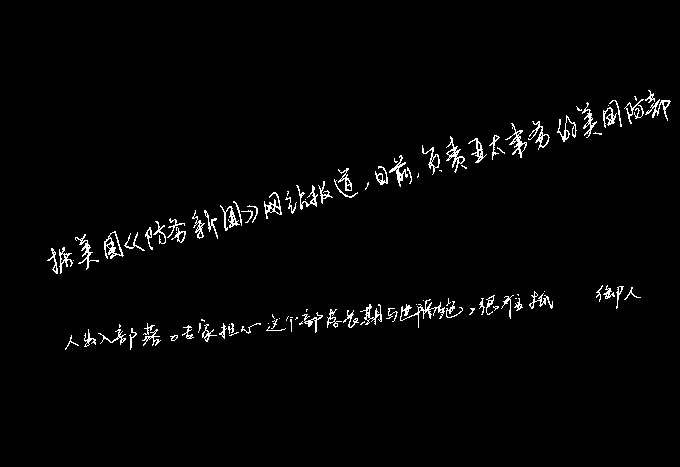 据美国《防务新闻》网站报道,日前,负责亚太事务的美国防部
人出入部落。专家担心这个部落长期与世隔绝,很难抵御人